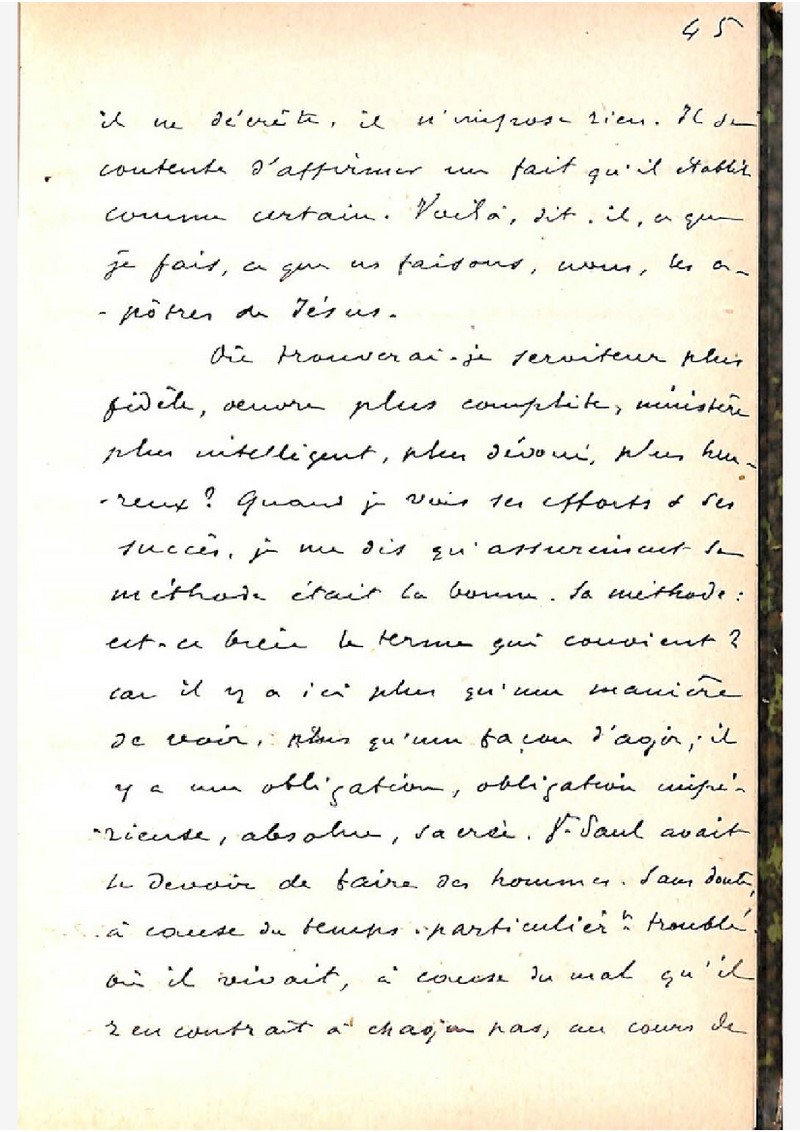 45
il ne décrète, il n'impose rien. Il se
contente d'affirmer un fait qu'il établit
comme certain. Voilà, dit-il, ce que
je fais, ce que ns faisons, nous, les a-
-pôtres de Jésus.
Où trouverai-je serviteur plus
fidèle, oeuvre plus complète, ministère
plus intelligent, plus dévoué, plus heu-
-reux? Quand je vois ses efforts & ses
succès, je me dis qu'assurément sa
méthode était la bonne. Sa méthode:
est-ce bien le terme qui convient?
car il y a ici plus qu'une manière
de voir, plus qu'une façon d'agir; il
y a une obligation, obligation impé-
-rieuse, absolue, sacrée. St Paul avait
le devoir de faire des hommes. Sans doute,
à cause du temps particulièrt troublé
où il vivait, à cause du mal qu'il
rencontrait à chaque pas, au cours de